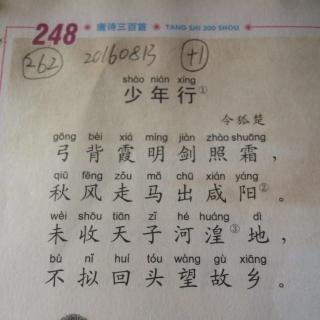 248 唐诗三百首 TANG SHI 300 SHOU
262 20160813 +1
shào nián xíng
少年行①
令狐楚
gōng bèi xiá míng jiàn zhào shuāng
弓背霞明剑照霜，
qiū fēng zǒu mǎ chū xián yáng
秋风走马出咸阳②。
wèi shōu tiān zǐ hé huáng dì
未收天子河湟③地，
bù nǐ huí tóu wàng gù xiāng
不拟回头望故乡。